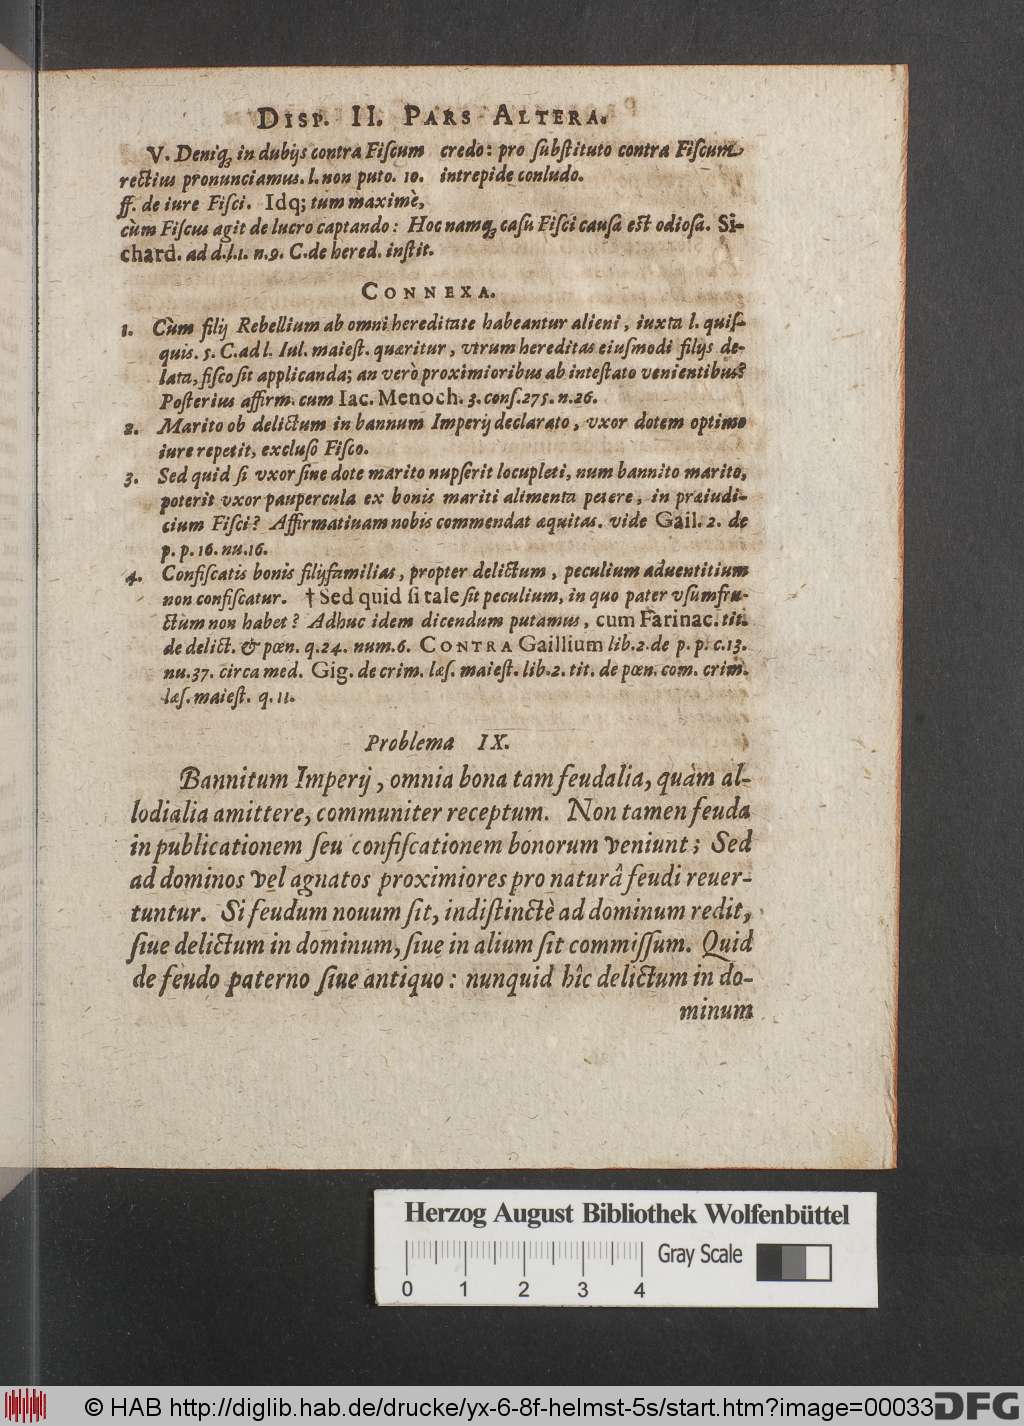 DISP. II. PARS ALTERA.
V. Deniq; in dubijs contra Fiſcum credo: pro ſubſtituto contra Fiſcum
rectius pronunciamus. l. non puto. 10. intrepide conludo.
ff. de iure Fiſci. Idq; tum maximè,
cùm Fiſcus agit de lucro captando: Hoc namq; caſu Fiſci cauſa eſt odioſa. Si-
chard. ad d. l. 1. n. 9. C. de hered. inſtit.
CONNEXA.
1. Cùm filij Rebellium ab omni hereditate habeantur alieni, iuxta l. quiſ-
quis. 5. C. ad l. Iul. maieſt. quæritur, vtrum hereditas eiuſmodi filijs de-
lata, fiſco ſit applicanda; an verò proximioribus ab inteſtato venientibus?
Poſterius affirm. cum Iac. Menoch. 3. conſ. 275. n. 26.
2. Marito ob delictum in bannum Imperij declarato, vxor dotem optimo
iure repetit, excluſo Fiſco.
3. Sed quid ſi vxor ſine dote marito nupſerit locupleti, num bannito marito,
poterit vxor paupercula ex bonis mariti alimenta petere, in præiudi-
cium Fiſci? Affirmatiuam nobis commendat æquitas. vide Gail. 2. de
p. p. 16. nu. 16.
4. Confiſcatis bonis filijfamilias, propter delictum, peculium aduentitium
non confiſcatur. † Sed quid ſi tale ſit peculium, in quo pater vſumfru-
ctum non habet? Adhuc idem dicendum putamus, cum Farinac. tit.
de delict. & pœn. q. 24. num. 6. CONTRA Gaillium lib. 2. de p. p. c. 13.
nu. 37. circa med. Gig. de crim. læſ. maieſt. lib. 2. tit. de pœn. com. crim.
læſ. maieſt. q. 11.
Problema IX.
Bannitum Imperij, omnia bona tam feudalia, quàm al-
lodialia amittere, communiter receptum. Non tamen feuda
in publicationem ſeu confiſcationem bonorum veniunt; Sed
ad dominos vel agnatos proximiores pro naturâ feudi reuer-
tuntur. Si feudum nouum ſit, indiſtinctè ad dominum redit,
ſiue delictum in dominum, ſiue in alium ſit commiſſum. Quid
de feudo paterno ſiue antiquo: nunquid hîc delictum in do-
minum
Herzog August Bibliothek Wolfenbüttel
Gray Scale
0 1 2 3 4
© HAB http://diglib.hab.de/drucke/yx-6-8f-helmst-5s/start.htm?image=00033
DFG